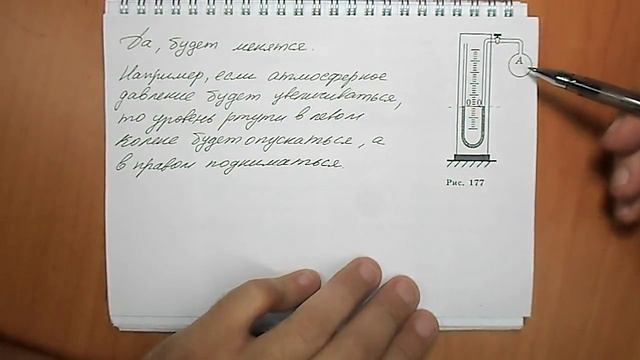 Да, будет менятся.
Например, если атмосферное
давление будет увеличиваться,
то уровень ртути в левом
колене будет опускаться, а
в правом подниматься.
A
0 0
Рис. 177